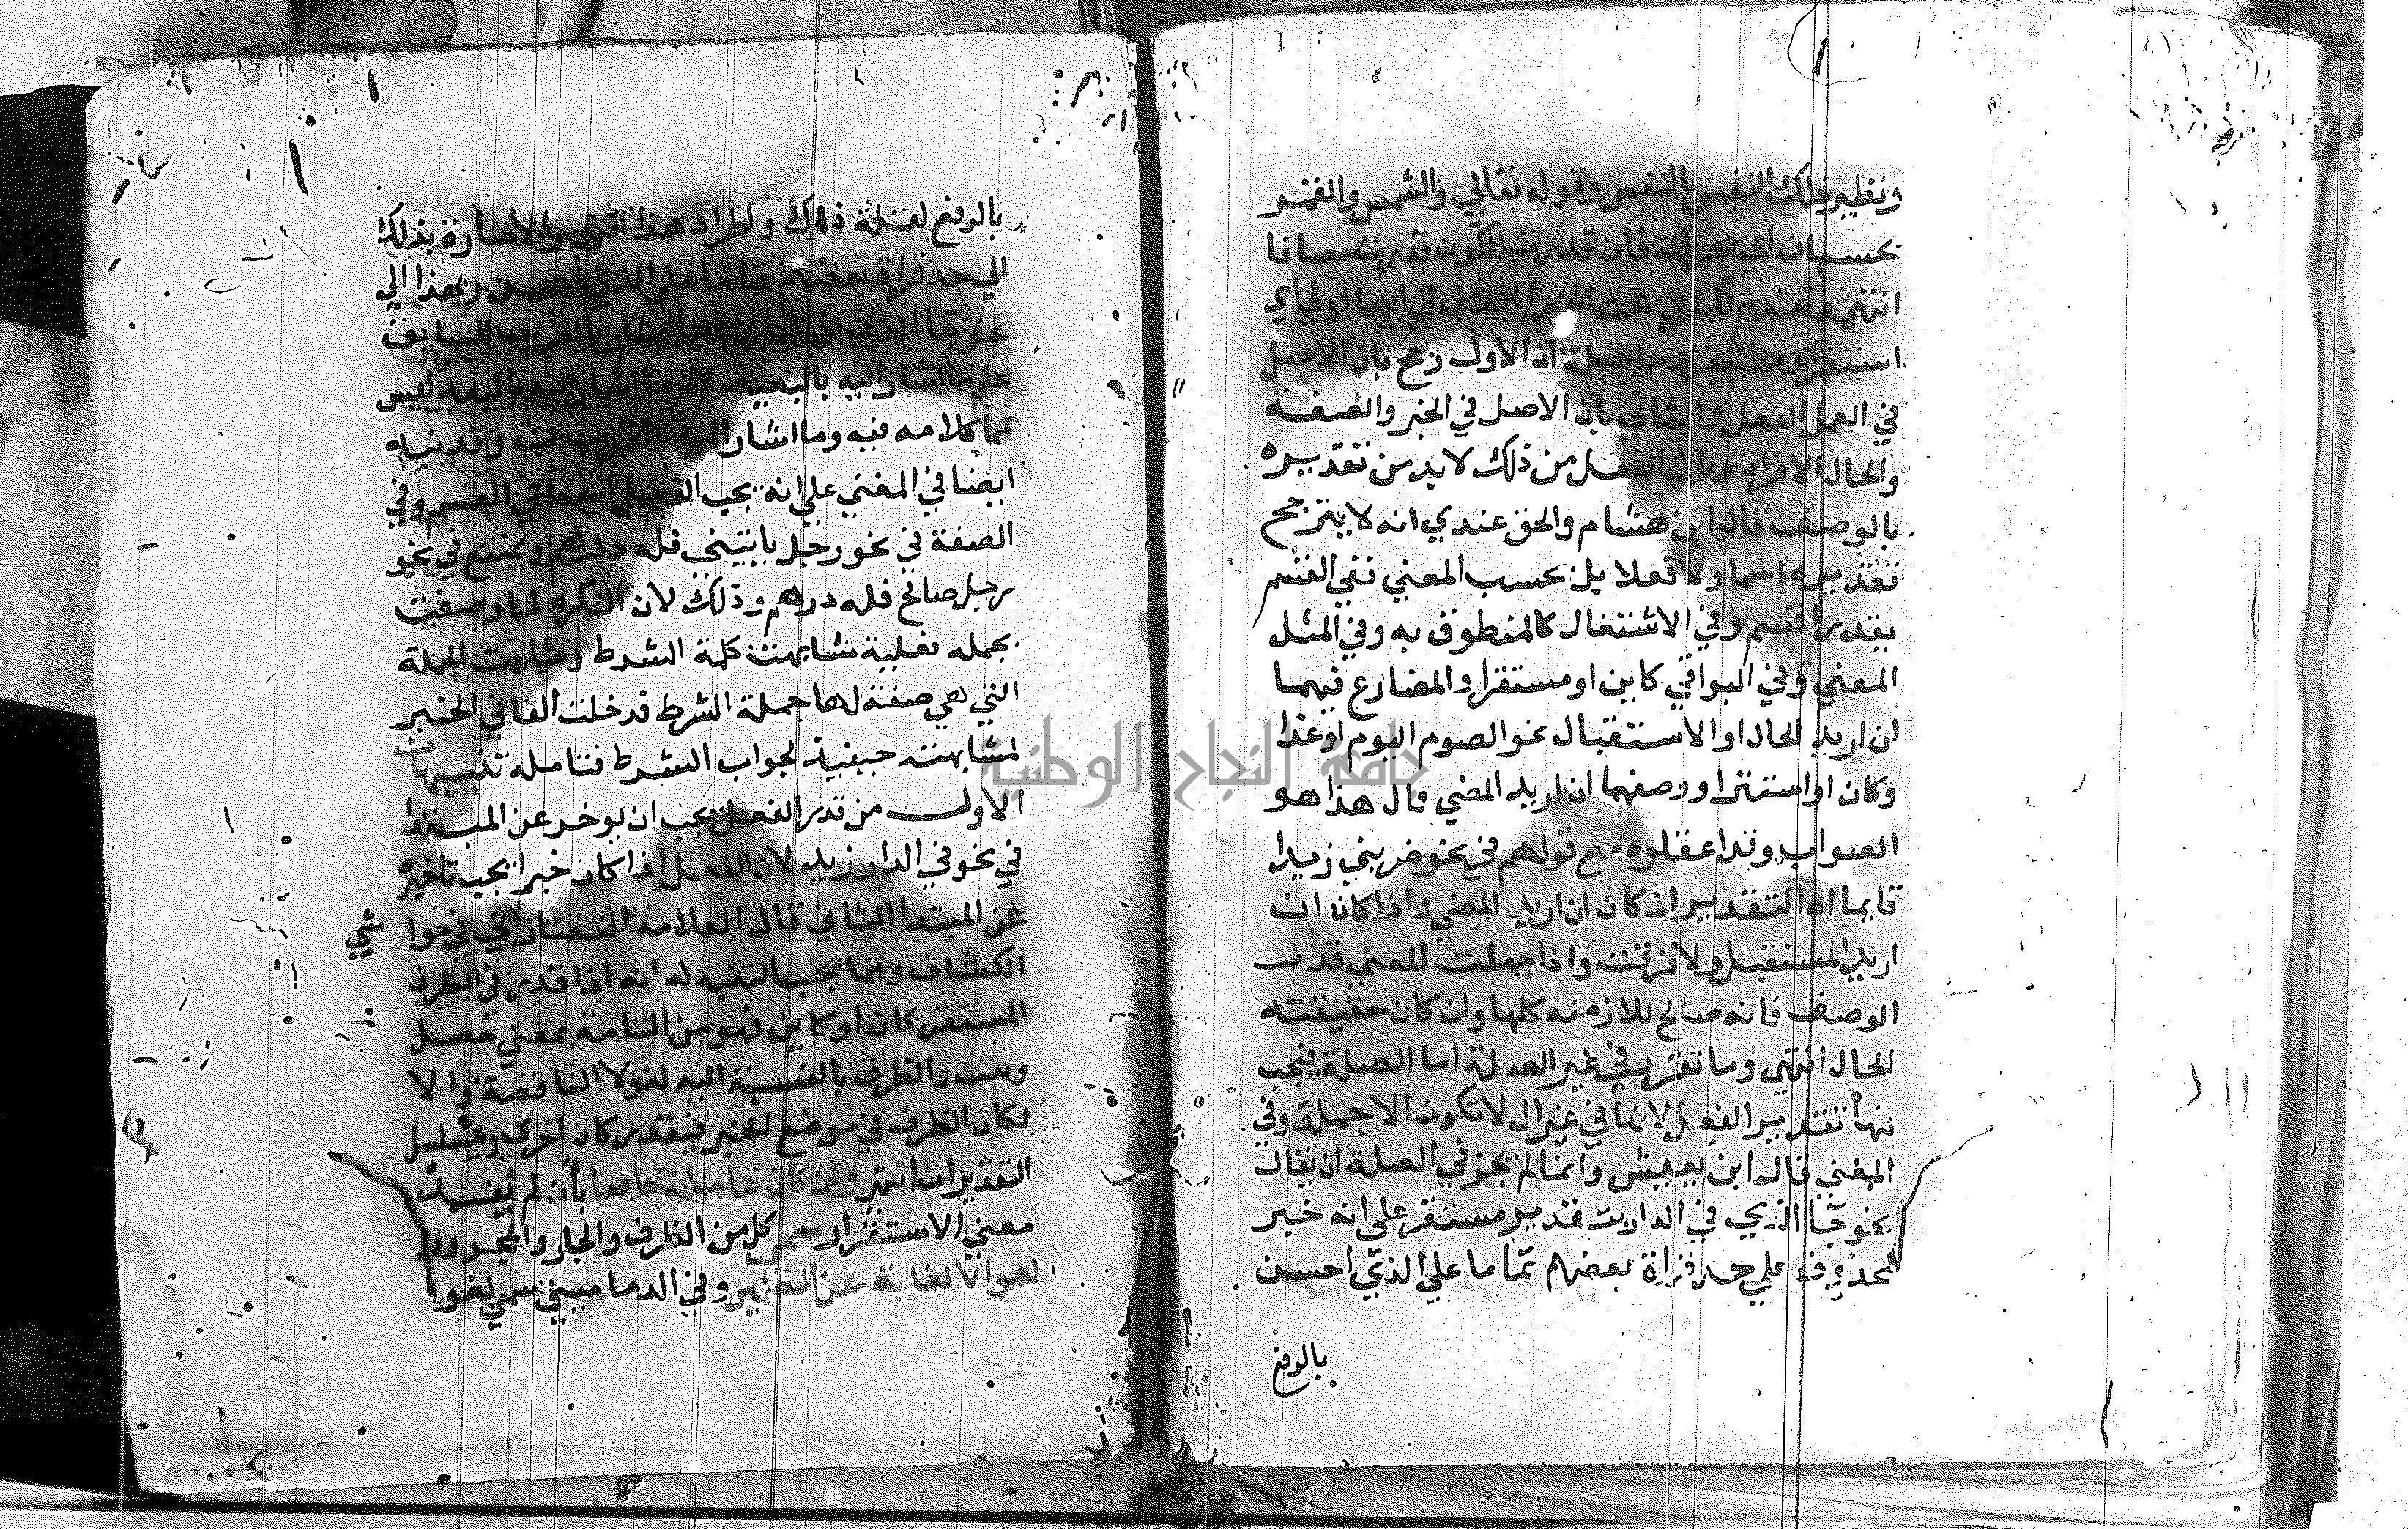 ونظير ذلك النفس بالنفس وقوله تعالي والشمس والقمر
بحسبان اي يجريان فان قدرت الكون قدرت مضافا
انتهي وتقدم لك في بحث الخبر الخلاف في ايهما اولي اي
استقر او مستقر وحاصله ان الاول رجح بان الاصل
في العمل الفعل والثاني بان الاصل في الخبر والصفة
والحال الافراد وبان الفعل من ذلك لا بد من تقديره
بالوصف قال ابن هشام والحق عندي انه لا يترجح
تقديره اسما ولا فعلا بل بحسب المعني ففي القسم
يقدر اقسم وفي الاشتغال كالمنطوق به وفي المثل
المعني وفي البواقي كاين او مستقر او المضارع فيهما
ان اريد الحال او الاستقبال نحو الصوم اليوم او غدا
وكان او استقر او وصفهما ان اريد المضي قال هذا هو
الصواب وقد اغفلوه مع قولهم في نحو ضربي زيدا
قايما ان التقدير اذ كان ان اريد المضي واذا كان ان
اريد المستقبل ولا فرقت واذا جهلت المعني قدر
الوصف فانه صالح للازمنه كلها وان كان حقيقته
الحال انتهي وما تقرر في غير الصلة اما الصلة فيجب
فيها تقدير الفعل لانها في غير ال لا تكون الا جملة وفي
المغني قال ابن يعيش وانما لم يجز في الصلة ان يقال
نحو جا الذي في الدار بتقدير مستقر علي انه خبر
لمحذوف علي حد قراة بعضهم تماما علي الذي احسن
بالرفع
بالرفع لقلة ذاك ولطراد هذا انتهي والاشارة بذلك
الي حد قراة بعضهم تماما علي الذي احسن وبهذا الي
نحو جا الذي في الدار وانما اشار بالقرب للسابق
علي ما اشار اليه بالبعيد لان ما اشار اليه بالبعد ليس
مما كلامه فيه وما اشار اليه بالقرب منه وقد نبه
ايضا في المغني علي انه يجب الفعل ايضا في القسم وفي
الصفة في نحو رجل ياتيني فله درهم ويمتنع في نحو
رجل صالح فله درهم وذلك لان النكره لما وصفت
بجمله فعلية شابهت كلمة الشرط وشابهت الجملة
التي هي صفة لها جملة الشرط فدخلت الفا في الخبر
لمشابهته حينيذ لجواب الشرط فتامله تنبيهات
الاول من قدر الفعل يجب ان يوخر عن المبتدا
في نحو في الدار زيد لان الفعل اذا كان خبرا يجب تاخيره
عن المبتدا الثاني قال العلامة التفتازاني في حواشي
الكشاف ومما يجب التنبه له انه اذا قدر في الظرف
المستقر كان او كاين فهو من التامة بمعني حصل
وثبت والظرف بالنسبة اليه لغو لا الناقصة والا
لكان الظرف في موضع الخبر فيقدر كان اخري ويتسلسل
التقديرات انتهي وان كان عامله خاصا بان لم يفد
معني الاستقرار سمي كل من الظرف والجار والمجرور
لغوا لالغايه عن الضمير وفي الدماميني سمي لغوا
جامعة النجاح الوطنية